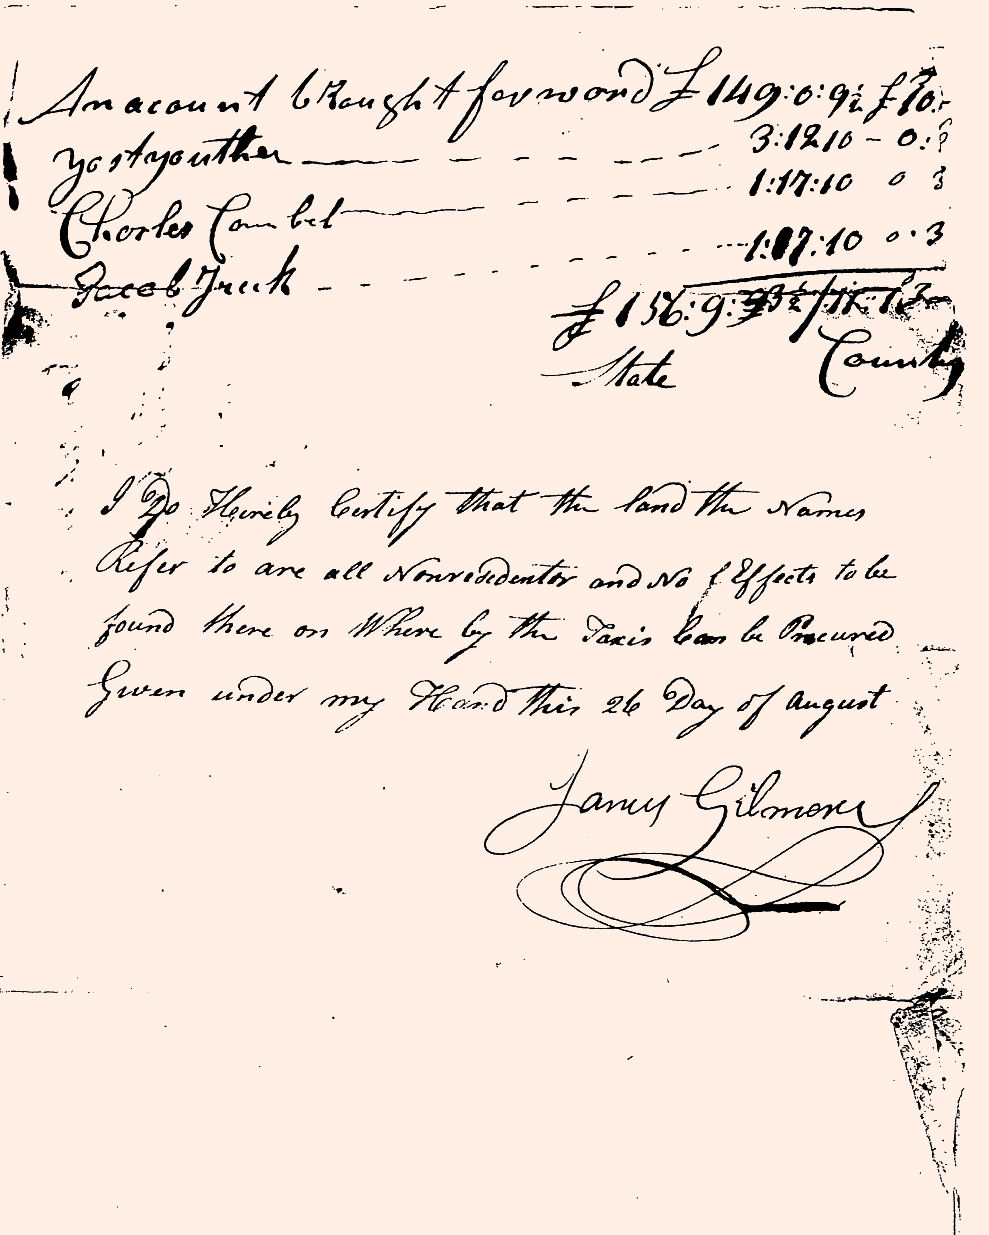 An acount bRought forword £ 149:0:9½ £ 10:
yost youther 3:12 10 - 0:
Charles Cambel 1:17:10 0 3
Jacob 1:17:10 0.3
£ 156:9:3½
State County
I Do Hereby Certify that the land the Names
Refer to are all Nonresedentor and No Effects to be
found there on Where by the Taxis Can be Procured
Given under my Hand this 26 Day of August
James Gilmore